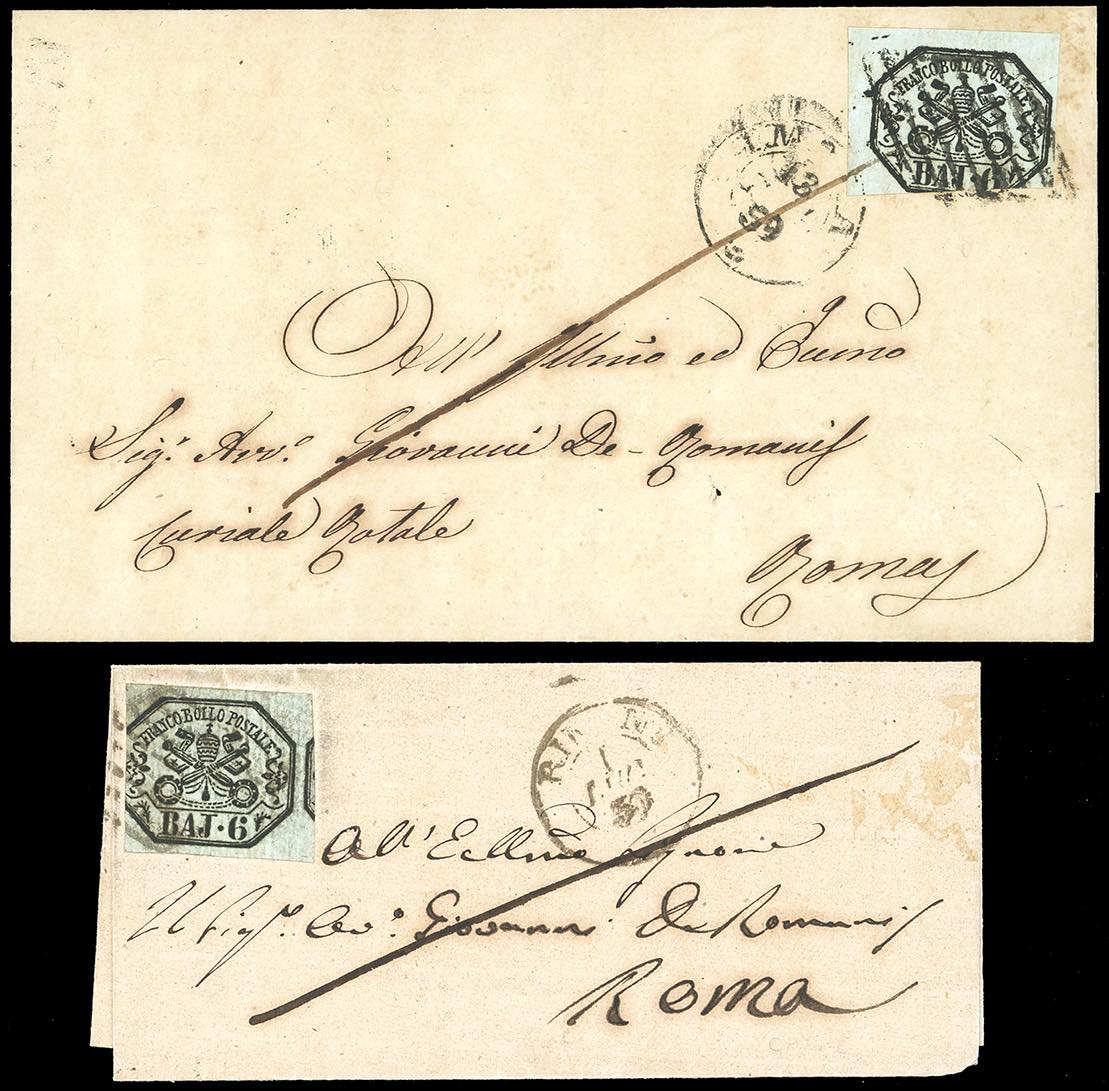 FRANCO BOLLO POSTALE
BAJ·6
59
Dell' Illmo ed
Sig.r Avv.o Giovanni De-Romanis
Curiale Rotale
Roma
FRANCO BOLLO POSTALE
BAJ·6
RIM
1
All' Ecllmo Signore
Il Sig.r Avv.o Giovanni De Romanis
Roma